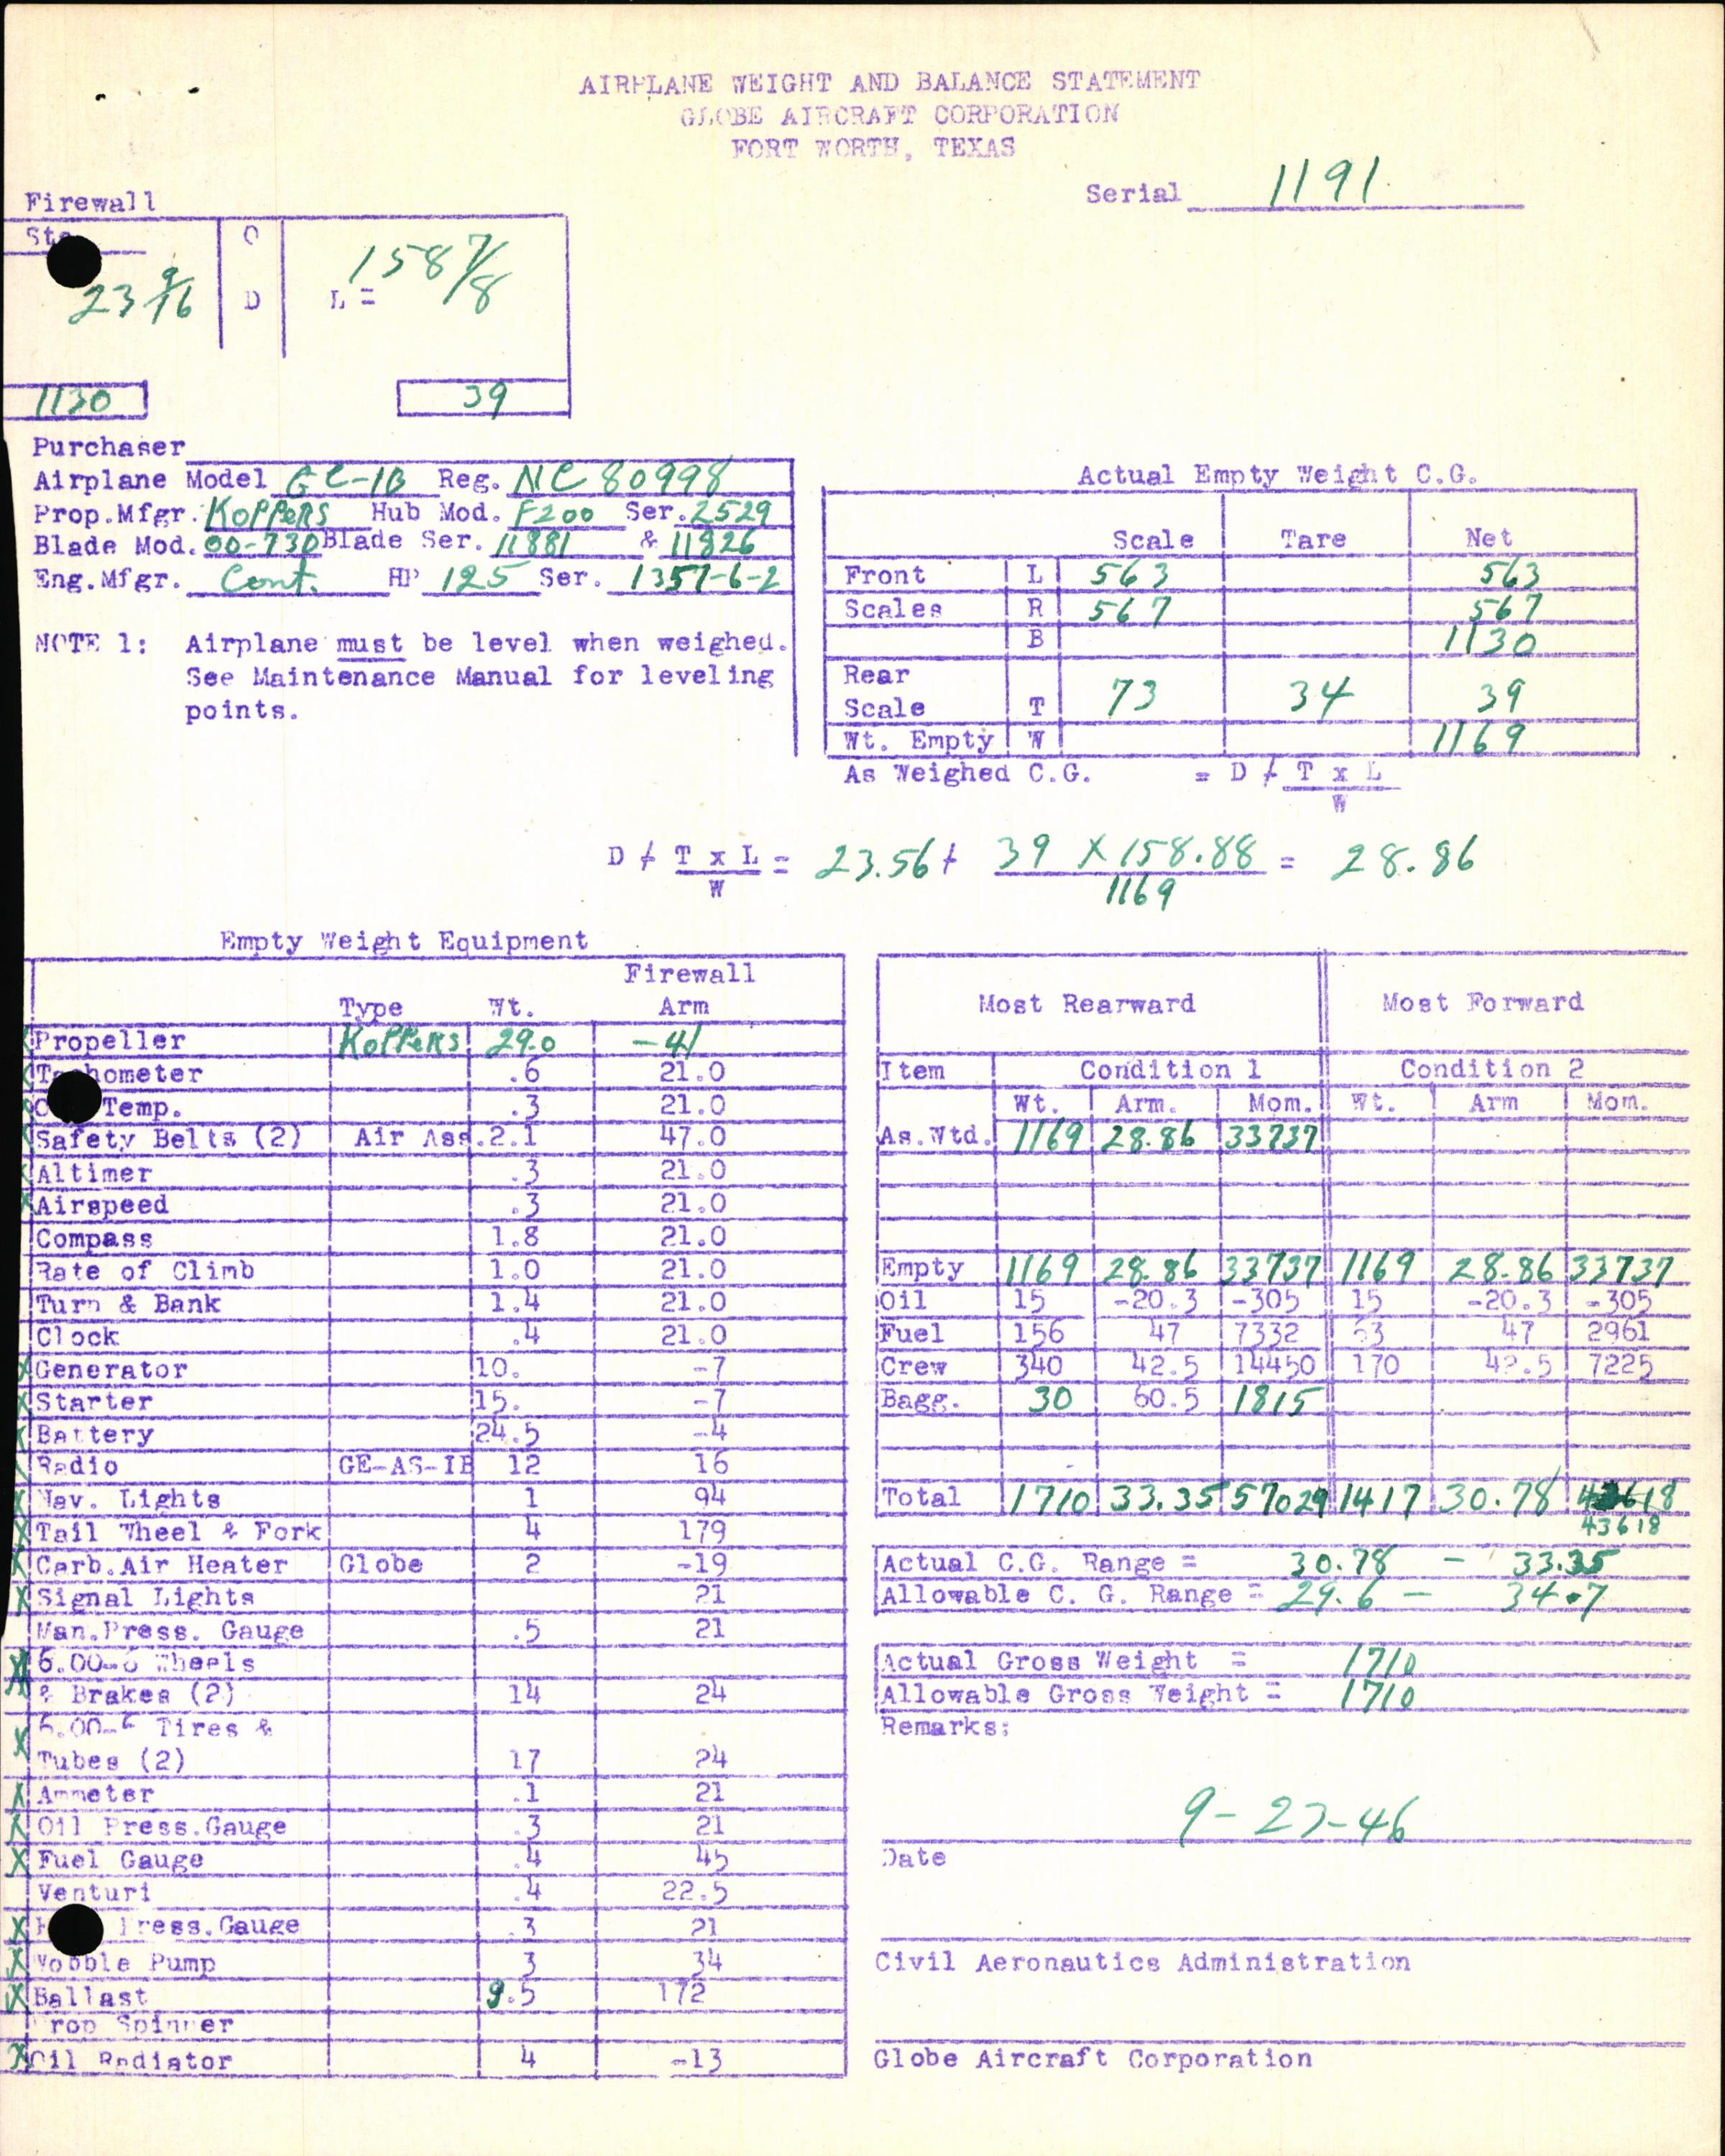 AIRPLANE WEIGHT AND BALANCE STATEMENT
GLOBE AIRCRAFT CORPORATION
FORT WORTH, TEXAS
Serial 1191
Firewall
C
23 9/16 D L = 158 7/8
1130 39
Purchaser
Airplane Model GC-1B Reg. NC 80998
Prop.Mfgr. KOPPERS Hub Mod. F200 Ser. 2529
Blade Mod. 00-730 Blade Ser. 11881 & 11826
Eng.Mfgr. Cont. HP 125 Ser. 1357-6-2
NOTE 1: Airplane must be level when weighed.
See Maintenance Manual for leveling
points.
Actual Empty Weight C.G.
Scale Tare Net
Front L 563 563
Scales R 567 567
B 1130
Rear
Scale T 73 34 39
Wt. Empty W 1169
As Weighed C.G. = D + T x L
W
D + T x L = 23.56 + 39 X 158.88 = 28.86
W 1169
Empty Weight Equipment
Firewall
Type Wt. Arm
X Propeller KOPPERS 29.0 -41
.6 21.0
Temp. .3 21.0
X Safety Belts (2) Air Ass. 2.1 47.0
X Altimer .3 21.0
X Airspeed .3 21.0
Compass 1.8 21.0
Rate of Climb 1.0 21.0
Turn & Bank 1.4 21.0
Clock .4 21.0
X Generator 10. -7
X Starter 15. -7
X Battery 24.5 -4
X Radio GE-AS-1B 12 16
X Nav. Lights 1 94
X Tail Wheel & Fork 4 179
X Carb.Air Heater Globe 2 -19
X Signal Lights 21
Man.Press. Gauge .5 21
X 6.00-6 Wheels
& Brakes (2) 14 24
X 6.00-6 Tires &
Tubes (2) 17 24
X Ammeter .1 21
X Oil Press.Gauge .3 21
X Fuel Gauge .4 45
Venturi .4 22.5
X Press.Gauge .3 21
X Wobble Pump 3 34
X Ballast 9.5 172
Prop Spinner
X Oil Radiator 4 -13
Most Rearward Most Forward
Item Condition 1 Condition 2
Wt. Arm. Mom. Wt. Arm Mom.
As.Wtd. 1169 28.86 33737
Empty 1169 28.86 33737 1169 28.86 33737
Oil 15 -20.3 -305 15 -20.3 -305
Fuel 156 47 7332 63 47 2961
Crew 340 42.5 14450 170 42.5 7225
Bagg. 30 60.5 1815
Total 1710 33.35 57029 1417 30.78 43618
43618
Actual C.G. Range = 30.78 - 33.35
Allowable C. G. Range = 29.6 - 34.7
Actual Gross Weight = 1710
Allowable Gross Weight = 1710
Remarks:
9-23-46
Date
Civil Aeronautics Administration
Globe Aircraft Corporation